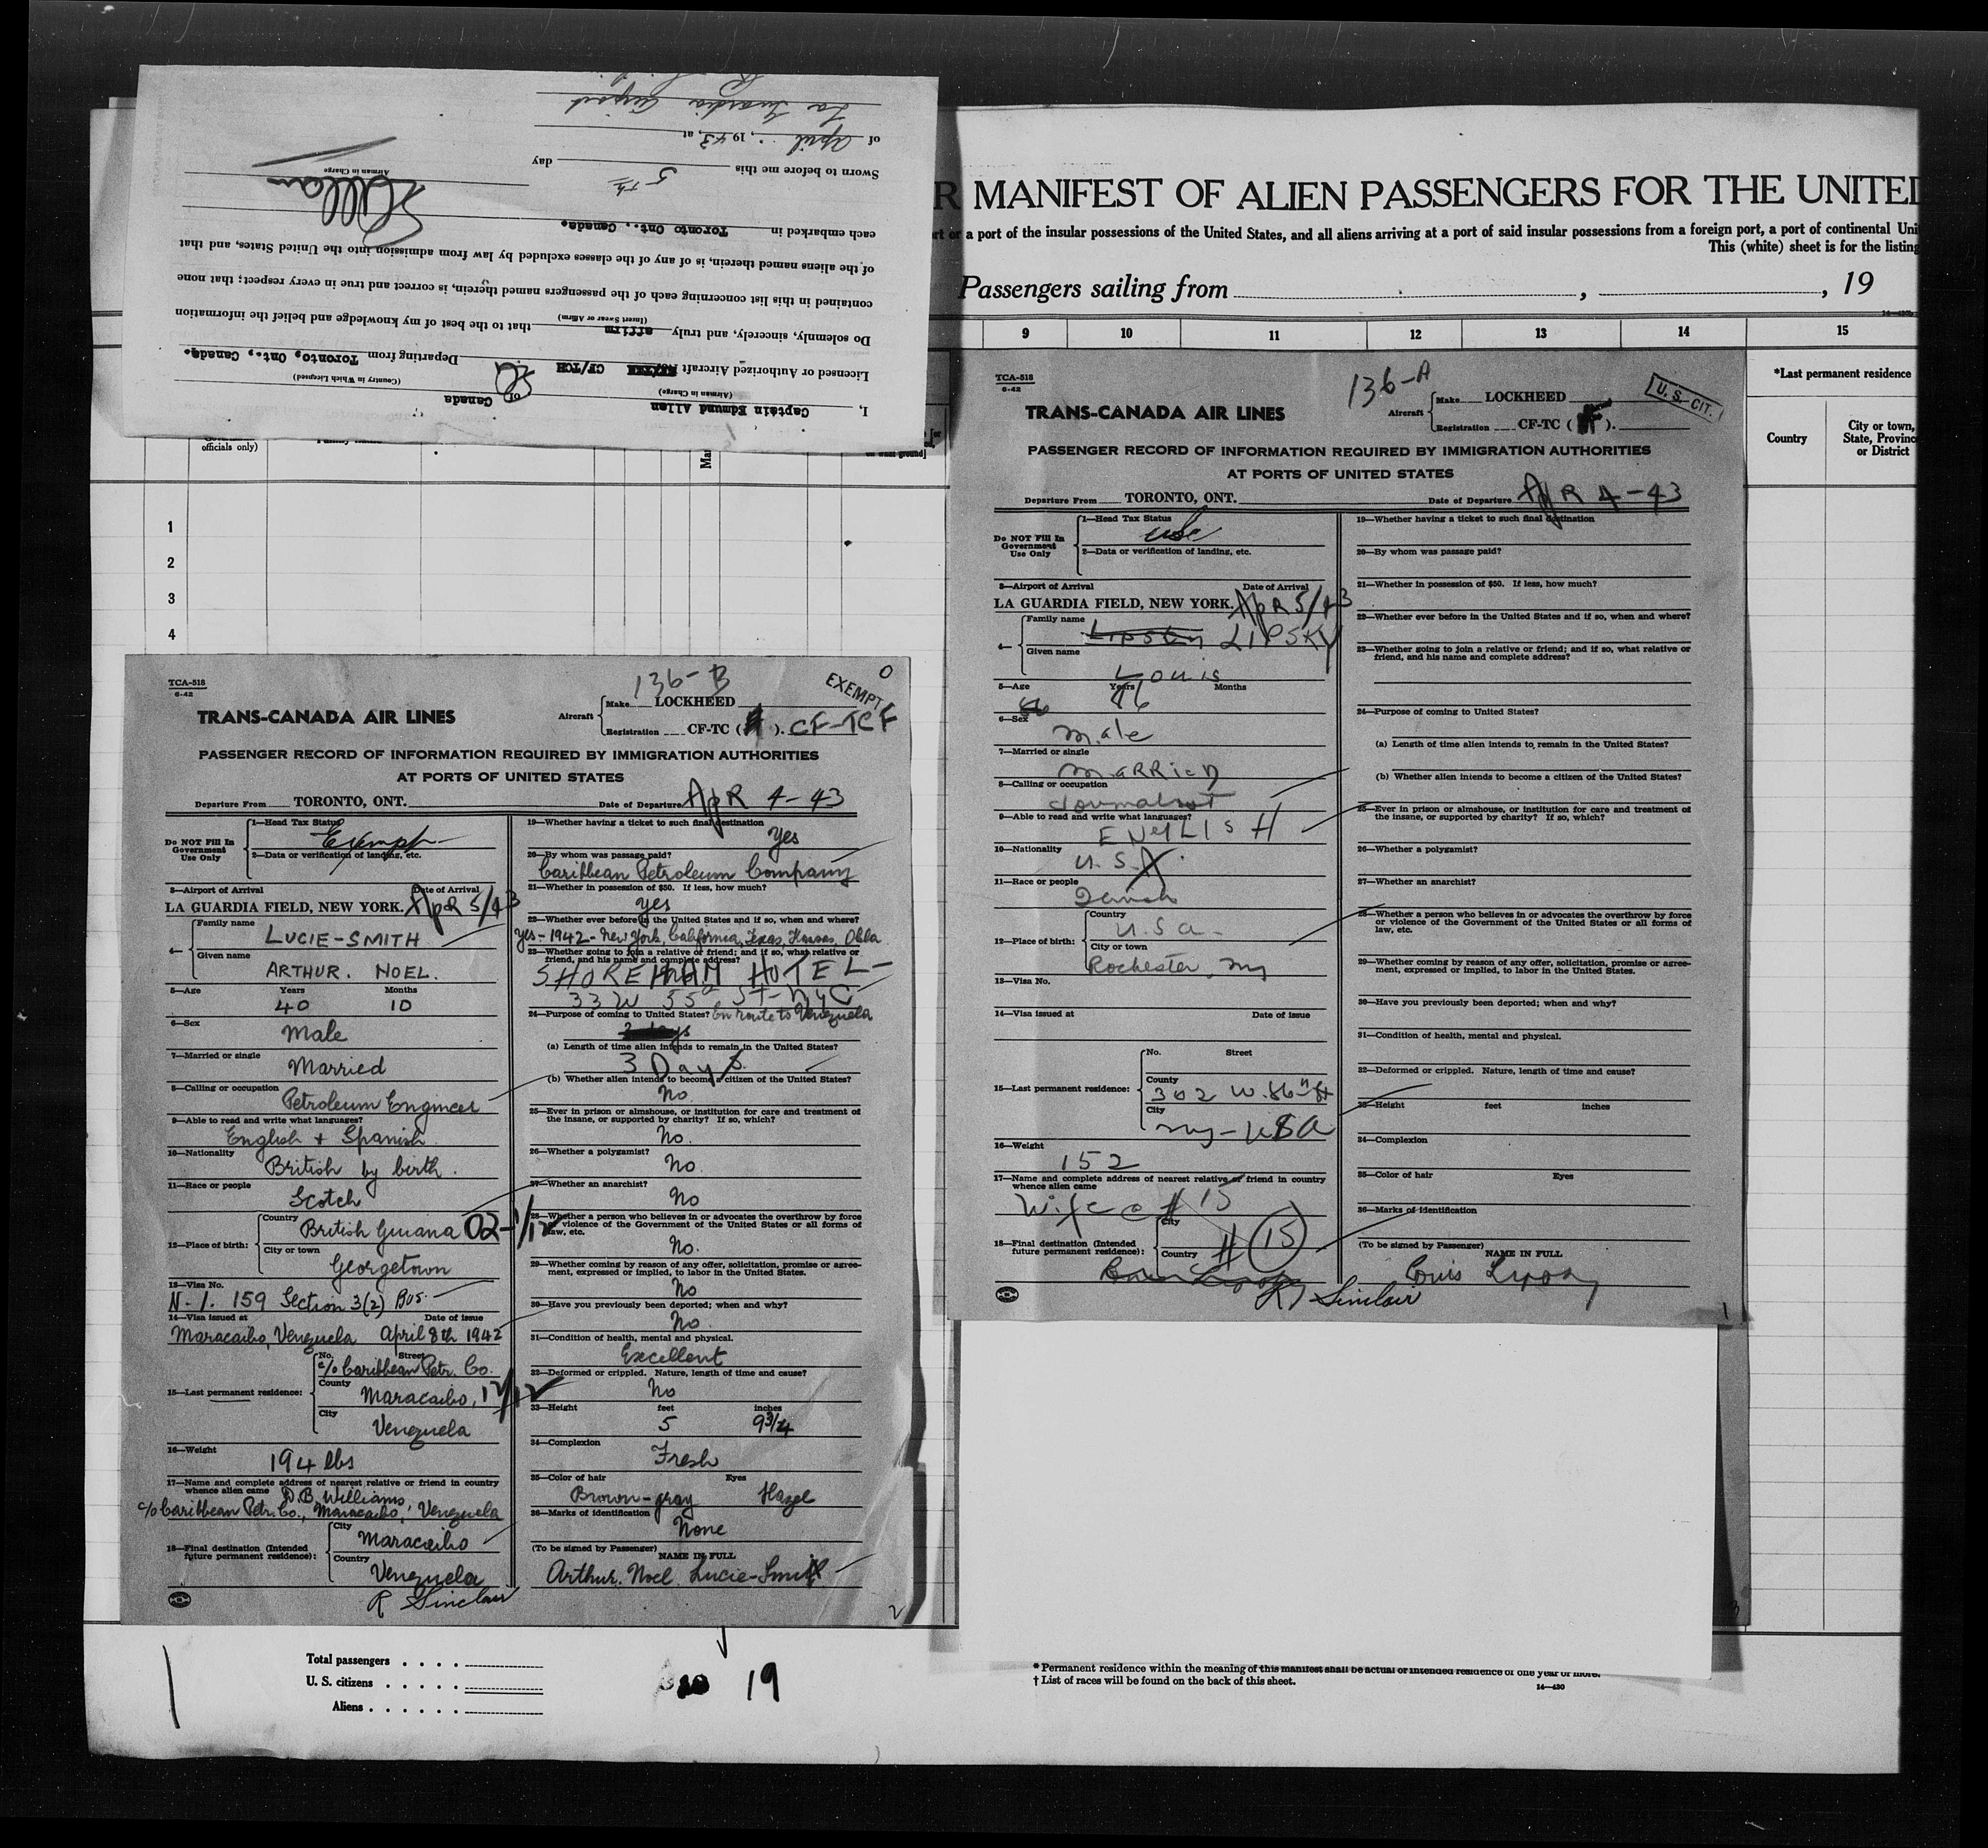 I, Captain Edmund Allen of Canada
(Airman in Charge) (Country in Which Licensed)
Licensed or Authorized Aircraft CF/TCH Departing from Toronto, Ont., Canada.
Do solemnly, sincerely, and truly affirm that to the best of my knowledge and belief the information
(Insert Swear or Affirm)
contained in this list concerning each of the passengers named therein, is correct and true in every respect; that none
of the aliens named therein, is of any of the classes excluded by law from admission into the United States, and that
each embarked in Toronto Ont., Canada.
Airman in Charge
Sworn to before me this 5th day
of April, 1943, at
La Guardia Airport
R MANIFEST OF ALIEN PASSENGERS FOR THE UNITED
or a port of the insular possessions of the United States, and all aliens arriving at a port of said insular possessions from a foreign port, a port of continental Uni
This (white) sheet is for the listing
Passengers sailing from , , 19
9 10 11 12 13 14 15
*Last permanent residence
Country
City or town,
State, Provinc
or District
officials only)
1
2
3
4
TCA-518
6-42
136-B
EXEMPT
0
TRANS-CANADA AIR LINES
Aircraft
Make LOCKHEED
Registration CF-TC ( ). CF-TCF
PASSENGER RECORD OF INFORMATION REQUIRED BY IMMIGRATION AUTHORITIES
AT PORTS OF UNITED STATES
Departure From TORONTO, ONT. Date of Departure ApR 4-43
Do NOT Fill In
Government
Use Only
1—Head Tax Status
Exempt
2—Data or verification of landing, etc.
3—Airport of Arrival Date of Arrival
LA GUARDIA FIELD, NEW YORK. ApR 5/43
4— Family name
LUCIE-SMITH
Given name
ARTHUR. NOEL.
5—Age Years Months
40 10
6—Sex
Male
7—Married or single
Married
8—Calling or occupation
Petroleum Engineer
9—Able to read and write what languages?
English + Spanish
10—Nationality
British by birth.
11—Race or people
Scotch
12—Place of birth:
Country
British Guiana 02-1/12
City or town
Georgetown
13—Visa No.
N-1. 159 Section 3(2) Bus.
14—Visa issued at Date of issue
Maracaibo, Venezuela April 8th 1942
15—Last permanent residence:
No. Street
c/o Caribbean Petr. Co.
County
Maracaibo, 12/12
City
Venezuela
16—Weight
194 lbs
17—Name and complete address of nearest relative or friend in country
whence alien came D.B. Williams,
c/o Caribbean Petr. Co., Maracaibo, Venezuela
18—Final destination (Intended
future permanent residence):
City
Maracaibo
Country
Venezuela
R Sinclair
19—Whether having a ticket to such final destination
Yes
20—By whom was passage paid?
Caribbean Petroleum Company
21—Whether in possession of $50. If less, how much?
yes
22—Whether ever before in the United States and if so, when and where?
Yes-1942-New York, California, Texas, Kansas, Okla
23—Whether going to join a relative or friend; and if so, what relative or
friend, and his name and complete address?
SHOREHAM HOTEL-
33 W 55 ST-NYC
24—Purpose of coming to United States? En route to Venezuela
(a) Length of time alien intends to remain in the United States?
3 Days
(b) Whether alien intends to become a citizen of the United States?
No.
25—Ever in prison or almshouse, or institution for care and treatment of
the insane, or supported by charity? If so, which?
No.
26—Whether a polygamist?
No.
27—Whether an anarchist?
No
28—Whether a person who believes in or advocates the overthrow by force
or violence of the Government of the United States or all forms of
law, etc.
No.
29—Whether coming by reason of any offer, solicitation, promise or agree-
ment, expressed or implied, to labor in the United States.
No
30—Have you previously been deported; when and why?
No.
31—Condition of health, mental and physical.
Excellent
32—Deformed or crippled. Nature, length of time and cause?
No
33—Height feet inches
5 9 3/4
34—Complexion
Fresh
35—Color of hair Eyes
Brown-gray Hazel
36—Marks of identification
None
(To be signed by Passenger) NAME IN FULL
Arthur. Noel. Lucie-Smith
2
TCA-518
6-42
136-A
U. S. CIT.
TRANS-CANADA AIR LINES
Aircraft
Make LOCKHEED
Registration CF-TC ( F ).
PASSENGER RECORD OF INFORMATION REQUIRED BY IMMIGRATION AUTHORITIES
AT PORTS OF UNITED STATES
Departure From TORONTO, ONT. Date of Departure ApR 4-43
Do NOT Fill In
Government
Use Only
1—Head Tax Status
usc
2—Data or verification of landing, etc.
3—Airport of Arrival Date of Arrival
LA GUARDIA FIELD, NEW YORK. ApR 5/43
4— Family name
Lipsky LIPSKY
Given name
Louis
5—Age Years Months
66
6—Sex
Male
7—Married or single
MARRIED
8—Calling or occupation
Journalist
9—Able to read and write what languages?
ENGLISH
10—Nationality
U.S.A.
11—Race or people
12—Place of birth:
Country
U.S.A.
City or town
Rochester, NY
13—Visa No.
14—Visa issued at Date of issue
15—Last permanent residence:
No. Street
County
302 W. 86th St
City
NY-USA
16—Weight
152
17—Name and complete address of nearest relative or friend in country
whence alien came
Wife # 15
18—Final destination (Intended
future permanent residence):
City
Country # 15
R Sinclair
19—Whether having a ticket to such final destination
20—By whom was passage paid?
21—Whether in possession of $50. If less, how much?
22—Whether ever before in the United States and if so, when and where?
23—Whether going to join a relative or friend; and if so, what relative or
friend, and his name and complete address?
24—Purpose of coming to United States?
(a) Length of time alien intends to remain in the United States?
(b) Whether alien intends to become a citizen of the United States?
25—Ever in prison or almshouse, or institution for care and treatment of
the insane, or supported by charity? If so, which?
26—Whether a polygamist?
27—Whether an anarchist?
28—Whether a person who believes in or advocates the overthrow by force
or violence of the Government of the United States or all forms of
law, etc.
29—Whether coming by reason of any offer, solicitation, promise or agree-
ment, expressed or implied, to labor in the United States.
30—Have you previously been deported; when and why?
31—Condition of health, mental and physical.
32—Deformed or crippled. Nature, length of time and cause?
33—Height feet inches
34—Complexion
35—Color of hair Eyes
36—Marks of identification
(To be signed by Passenger) NAME IN FULL
Louis Lipsky
1
Total passengers
U. S. citizens
Aliens
19
* Permanent residence within the meaning of this manifest shall be actual or intended residence of one year or more.
† List of races will be found on the back of this sheet.
14—430